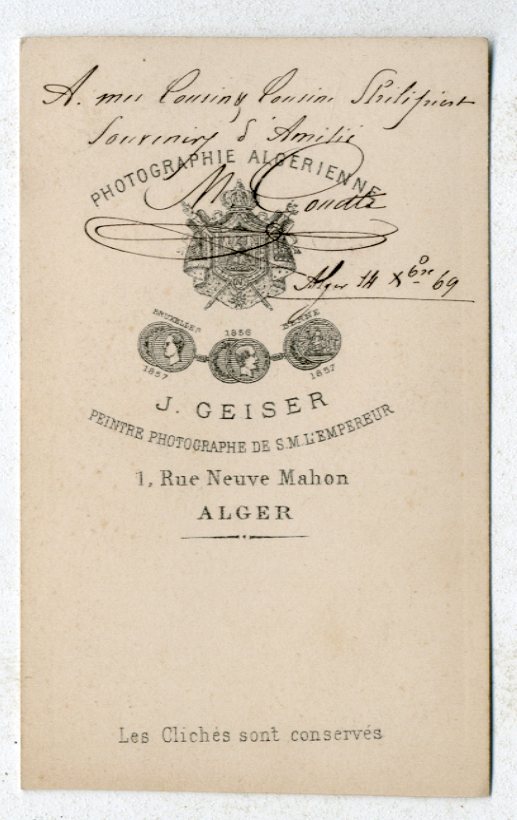 A. mes Cousin & Cousine
Souvenirs d'Amitié
PHOTOGRAPHIE ALGÉRIENNE
M
Alger 14 Xbre 69
BRUXELLES 1856 BERNE
1857 1857
J. GEISER
PEINTRE PHOTOGRAPHE DE S.M. L'EMPEREUR
1, Rue Neuve Mahon
ALGER
Les Clichés sont conservés